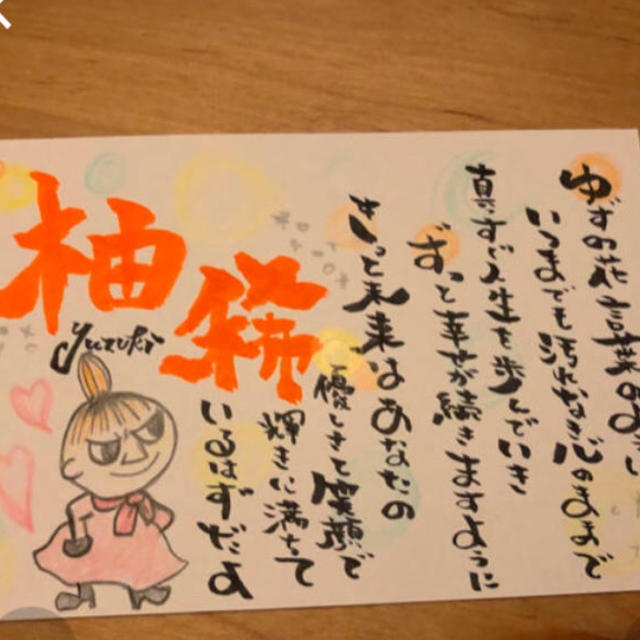 ゆずの花言葉のように
いつまでも汚れなき心のままで
真っすぐ人生を歩んでいき
ずっと幸せが続きますように
きっと未来はあなたの
優しさと笑顔で
輝きに満ちて
いるはずだよ
柚稀
yuzuki